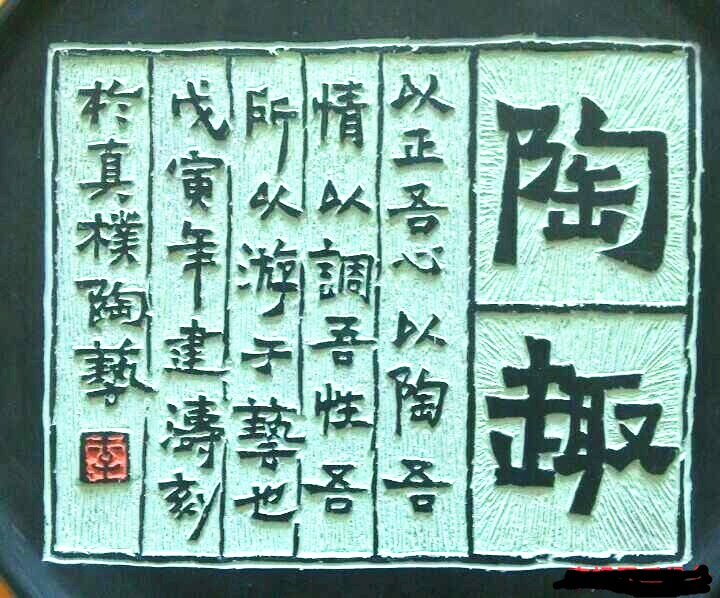 陶趣
以正吾心以陶吾
情以調吾性吾
所以游于藝也
戊寅年建濤刻
於真樸陶藝
李